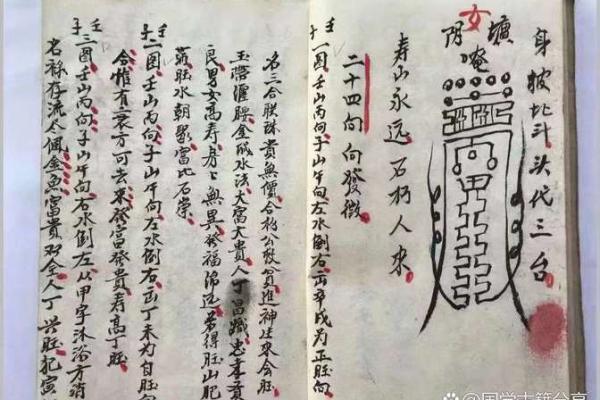 身披北斗头代三台
女
阴 塘
唵
寿山永远石朽人來
二十四向向發微
壬子 一圖壬山丙向子山午向左水倒右出辛戌为正旺向
名三合联珠貴無價合杨公救貧進神生來合旺
玉帶纏腰金城水法大富大貴人丁昌熾忠孝賢
良男女高寿房上無異發福綿远若得旺山肥
旺水朝聚富比石崇
壬子 二圖壬山丙向子山午向左水倒右出丁未为自旺向
合惟有衰方可去來發富發貴寿高丁旺
壬子 三圖壬山丙向子山午向右水倒左从甲字沐浴方消
名禄存流尽佩金魚富貴双全人丁兴旺犯寅
@国学古籍分享